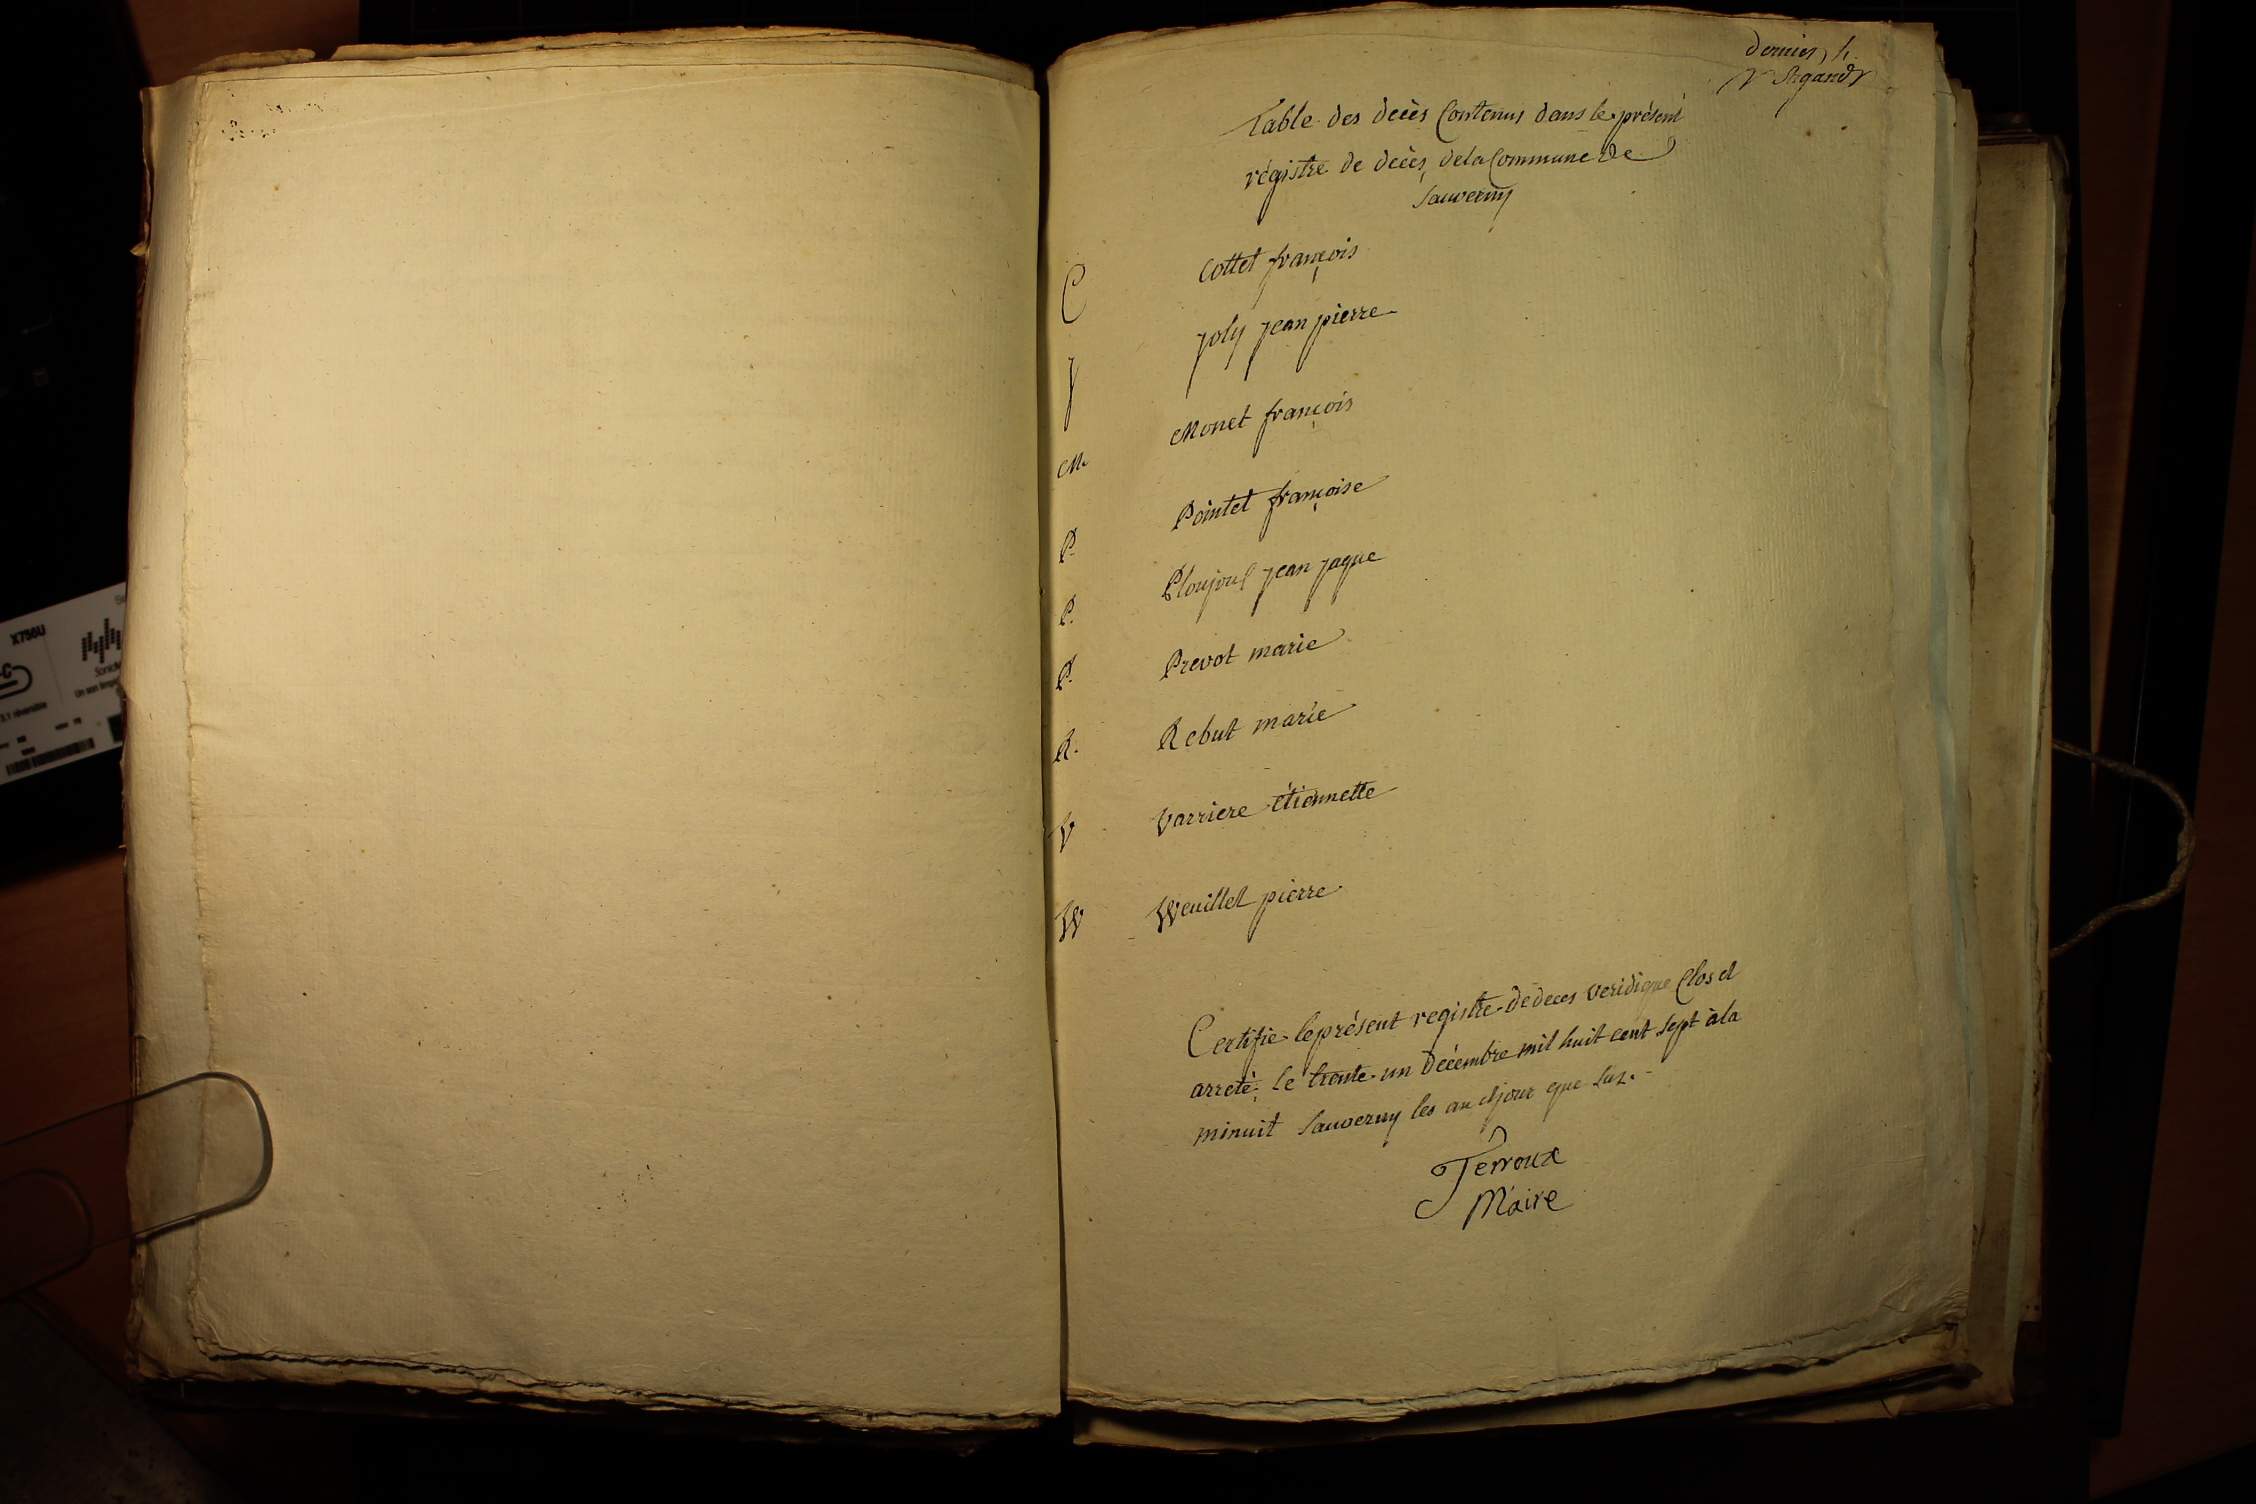 X756U
dernier 4
Table des décès Contenus dans le présent
régistre de décès, de la Commune de
Sauverny
C Cottet françois
J Joly Jean pierre
M Monet françois
P. Pointet françoise
P. Jean Jaque
P. Prevot marie
R. Rebut marie
V Varriere étiennette
W Weuillet pierre
Certifie le présent registre de deces veridique Clos et
arreté, le trente un Décembre mil huit cent sept à la
minuit Sauverny les an et jour que sus.
Terroux
Maire